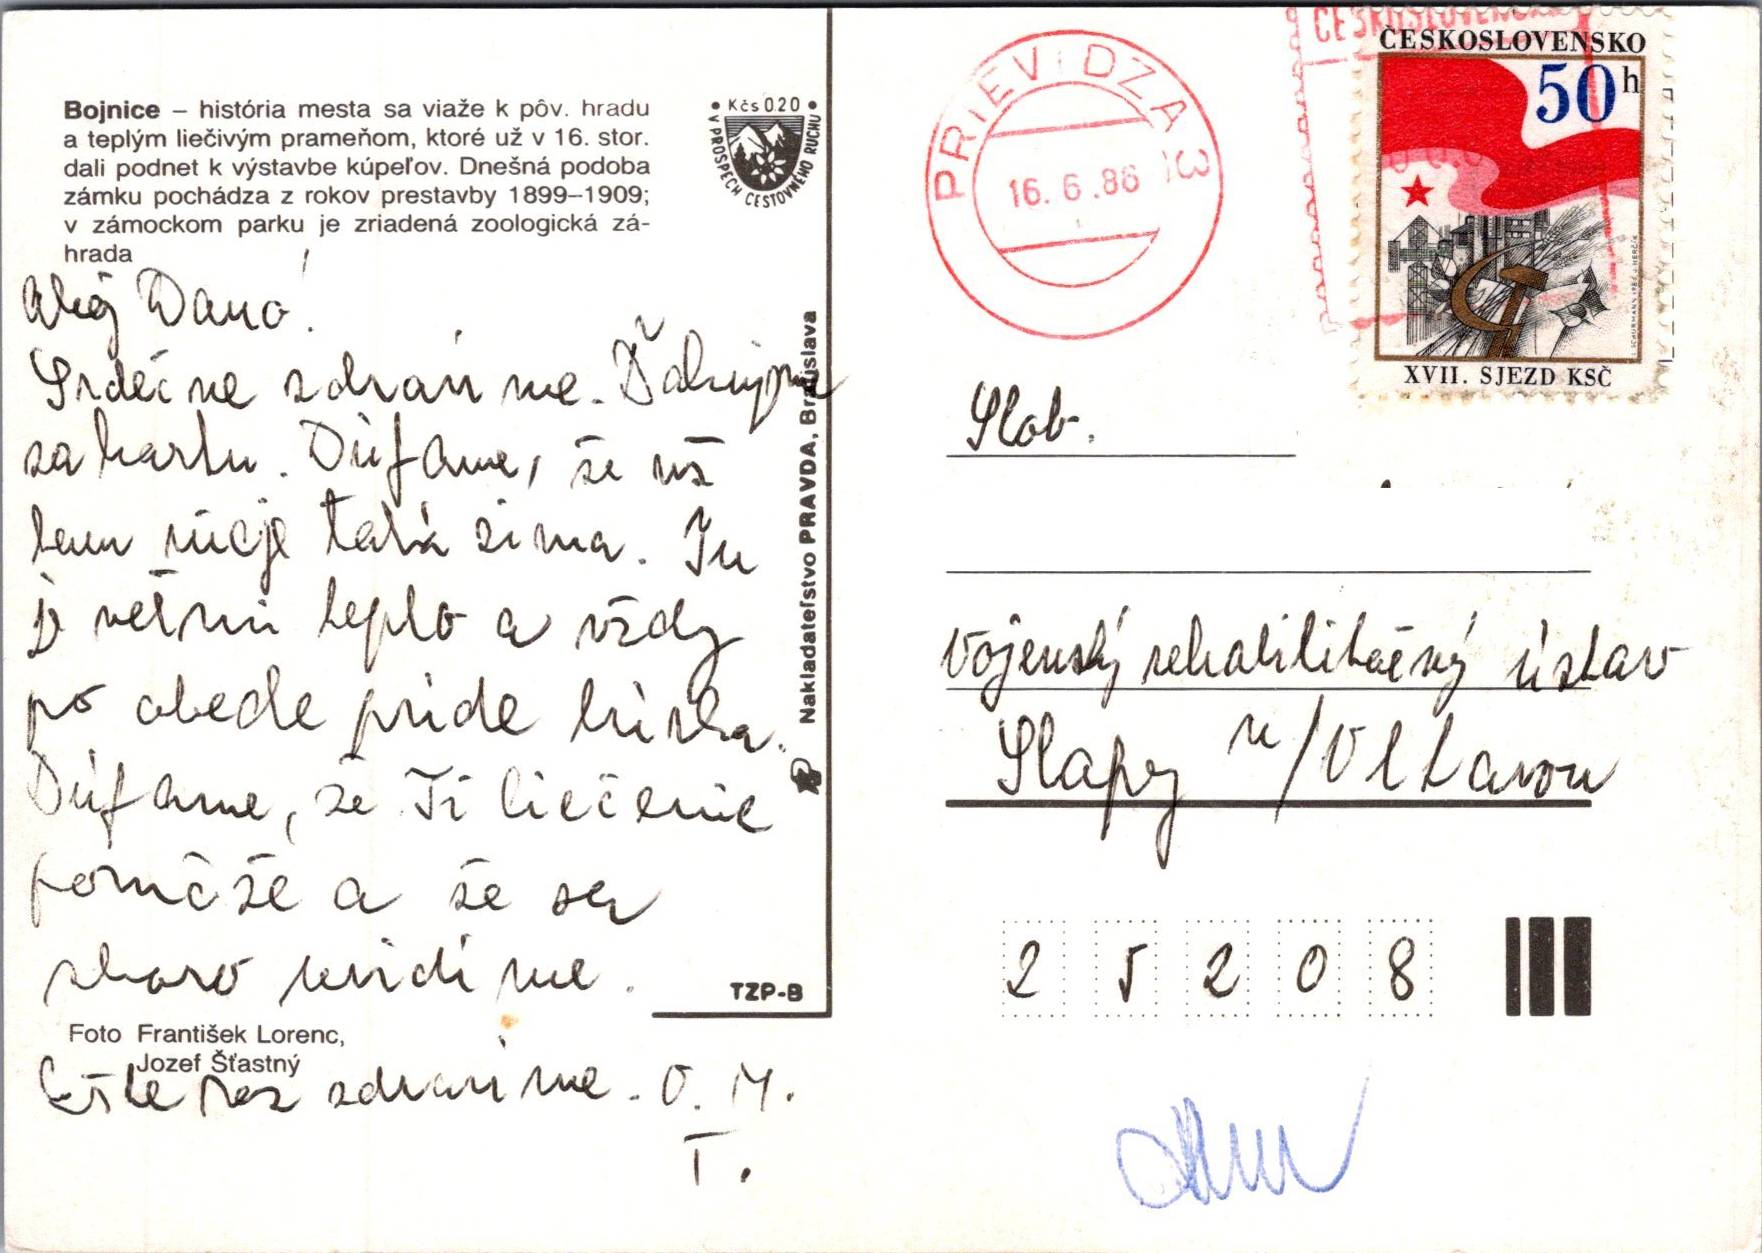 Bojnice – história mesta sa viaže k pôv. hradu
a teplým liečivým prameňom, ktoré už v 16. stor.
dali podnet k výstavbe kúpeľov. Dnešná podoba
zámku pochádza z rokov prestavby 1899–1909;
v zámockom parku je zriadená zoologická zá-
hrada
• Kčs 0.20 •
V PROSPECH CESTOVNÉHO RUCHU
Ahoj Dano!
Srdečne zdravíme. Ďakujeme
za kartu. Dúfame, že už
tam nie je taká zima. Tu
je veľmi teplo a vždy
po obede príde búrka.
Dúfame, že Ti liečenie
pomôže a že sa
skoro uvidíme.
TZP-B
Foto František Lorenc,
Jozef Šťastný
Ešte raz zdravíme. O. M.
T.
Nakladateľstvo PRAVDA, Bratislava
PRIEVIDZA 3
16.6.86
ČESKOSLOVENSKO
ČESKOSLOVENSKO
50h
XVII. SJEZD KSČ
Slob.
Vojenský rehabilitačný ústav
Slapy n/Vltavou
25208